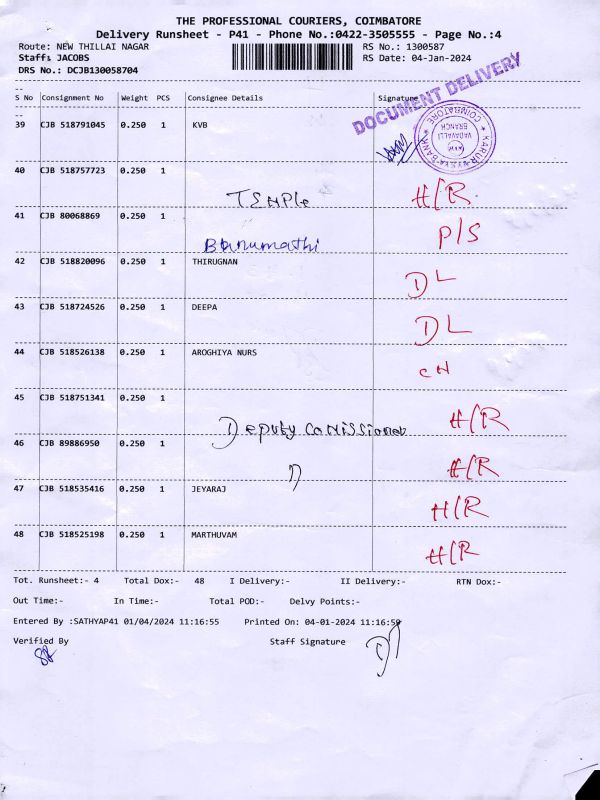 THE PROFESSIONAL COURIERS, COIMBATORE
Delivery Runsheet - P41 - Phone No.:0422-3505555 - Page No.:4
Route: NEW THILLAI NAGAR RS No.: 1300587
Staff: JACOBS RS Date: 04-Jan-2024
DRS No.: DCJB130058704
DOCUMENT DELIVERY
--
S No Consignment No Weight PCS Consignee Details Signature
39 CJB 518791045 0.250 1 KVB
KARUR VYSYA BANK COIMBATORE
VADAVALLI
BRANCH
40 CJB 518757723 0.250 1
TEMPle H/R
41 CJB 80068869 0.250 1
Banumathi P/S
42 CJB 518820096 0.250 1 THIRUGNAN
DL
43 CJB 518724526 0.250 1 DEEPA
DL
44 CJB 518526138 0.250 1 AROGHIYA NURS
CH
45 CJB 518751341 0.250 1
Deputy Comissioner H/R
46 CJB 89886950 0.250 1
" H/R
47 CJB 518535416 0.250 1 JEYARAJ
H/R
48 CJB 518525198 0.250 1 MARTHUVAM
H/R
Tot. Runsheet:- 4 Total Dox:- 48 I Delivery:- II Delivery:- RTN Dox:-
Out Time:- In Time:- Total POD:- Delvy Points:-
Entered By :SATHYAP41 01/04/2024 11:16:55 Printed On: 04-01-2024 11:16:59
Verified By Staff Signature